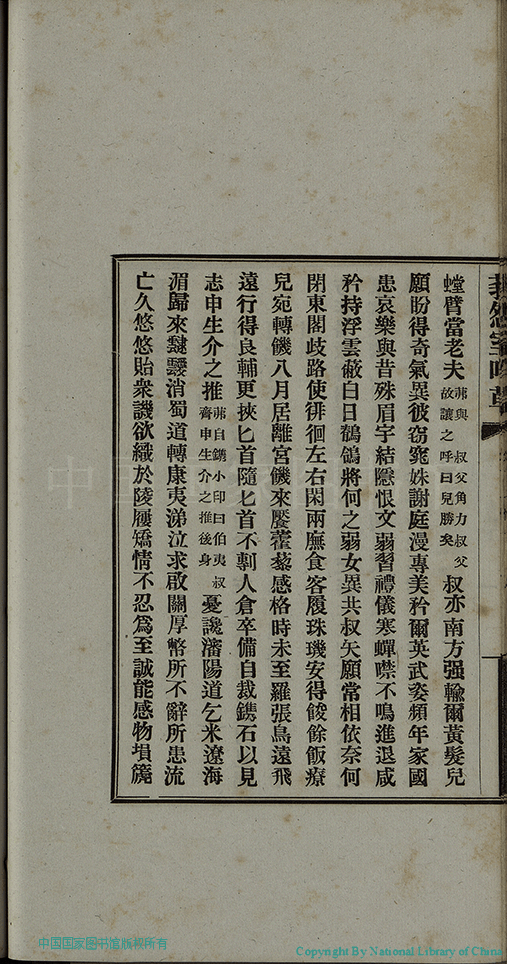 螳臂當老夫茀與叔父角力叔父故讓之呼曰兒勝矣叔亦南方强輸爾黃髮兒
願盼得奇氣異彼窈窕姝謝庭漫專美矜爾英武姿頻年家國
患哀樂與昔殊眉宇結隱恨文弱習禮儀寒蟬噤不鳴進退咸
矜持浮雲蔽白日鶺鴒將何之弱女異共叔矢願常相依奈何
閉東閣歧路使徘徊左右閑兩廡食客履珠璣安得餕餘飯療
兒宛轉饑八月居離宮饑來饜藿藜感格時未至羅張鳥遠飛
遠行得良輔更挾匕首隨匕首不剸人倉卒備自裁鐫石以見
志申生介之推茀自鐫小印曰伯夷叔齊申生介之推後身憂讒瀋陽道乞米遼海
湄歸來靆靆消蜀道轉康夷涕泣求啟關厚幣所不辭所患流
亡久悠悠貽衆譏欲織於陵屨矯情不忍爲至誠能感物塤篪
中国国家图书馆版权所有
Copyright By National Library of China